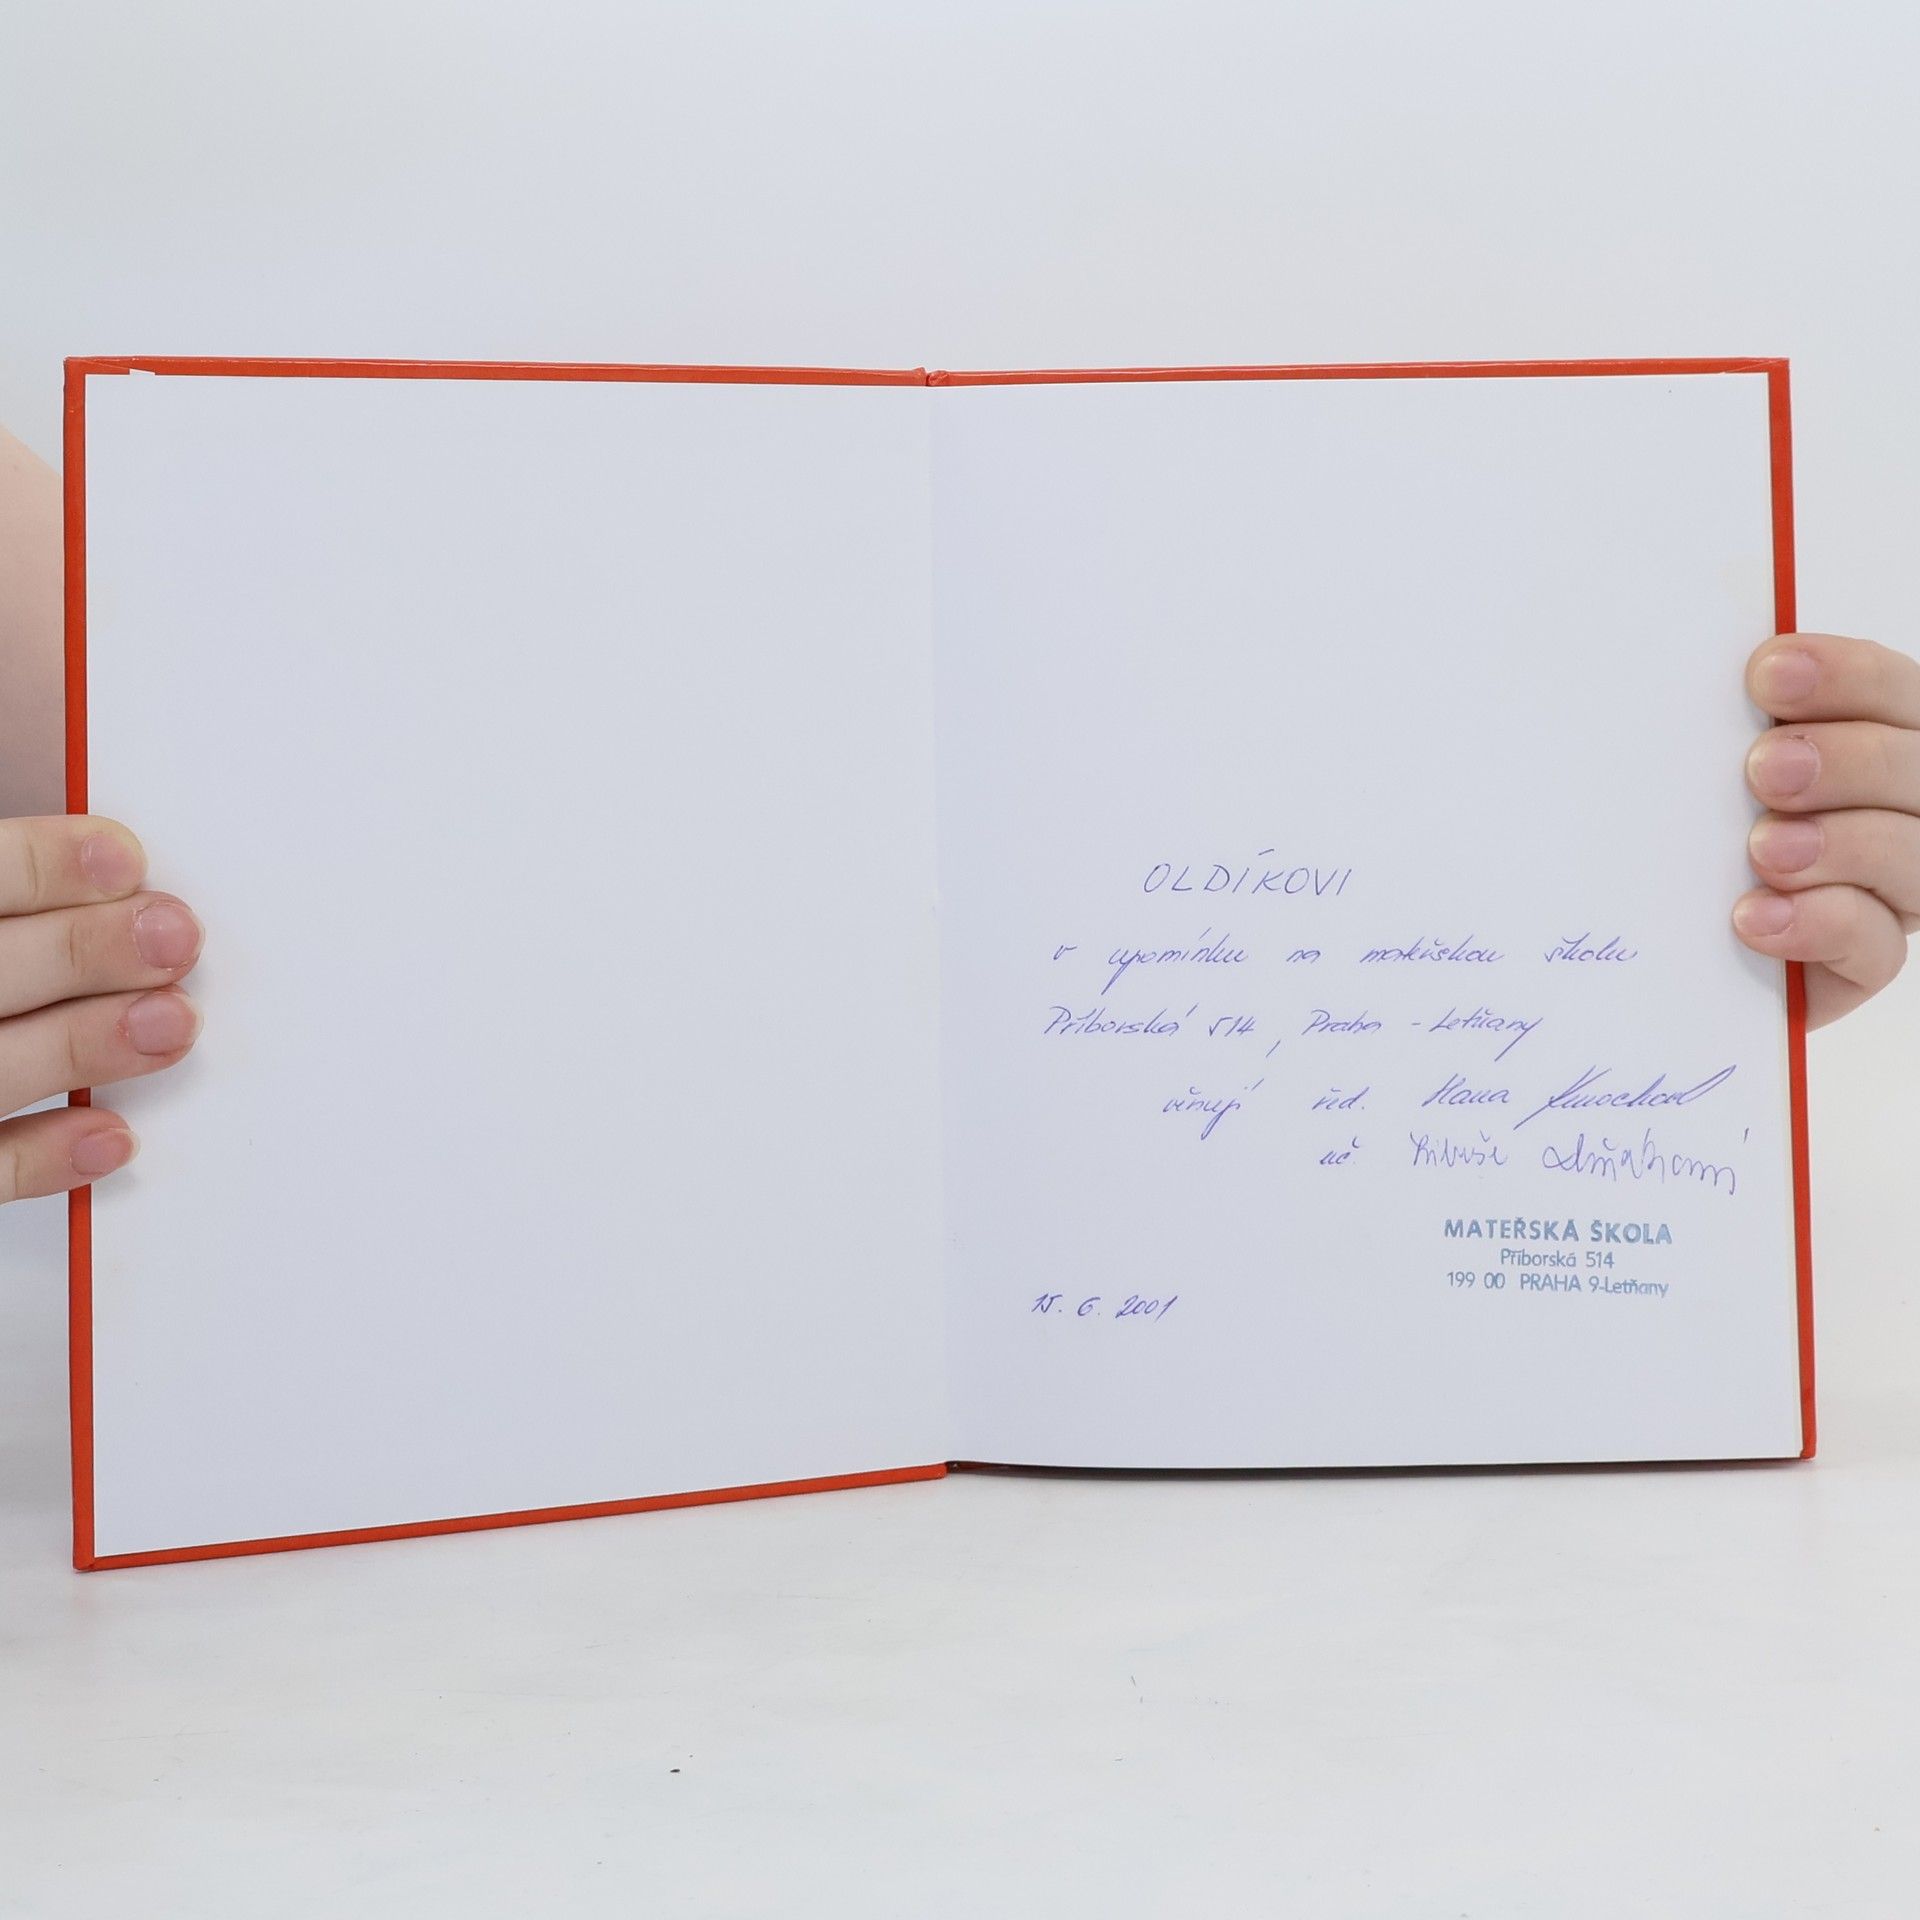 OLDÍKOVI
v upomínku na mateřskou školu
Příborská 514, Praha - Letňany
věnují řed. Hana
uč. Libuše
MATEŘSKÁ ŠKOLA
Příborská 514
199 00 PRAHA 9-Letňany
15. 6. 2001